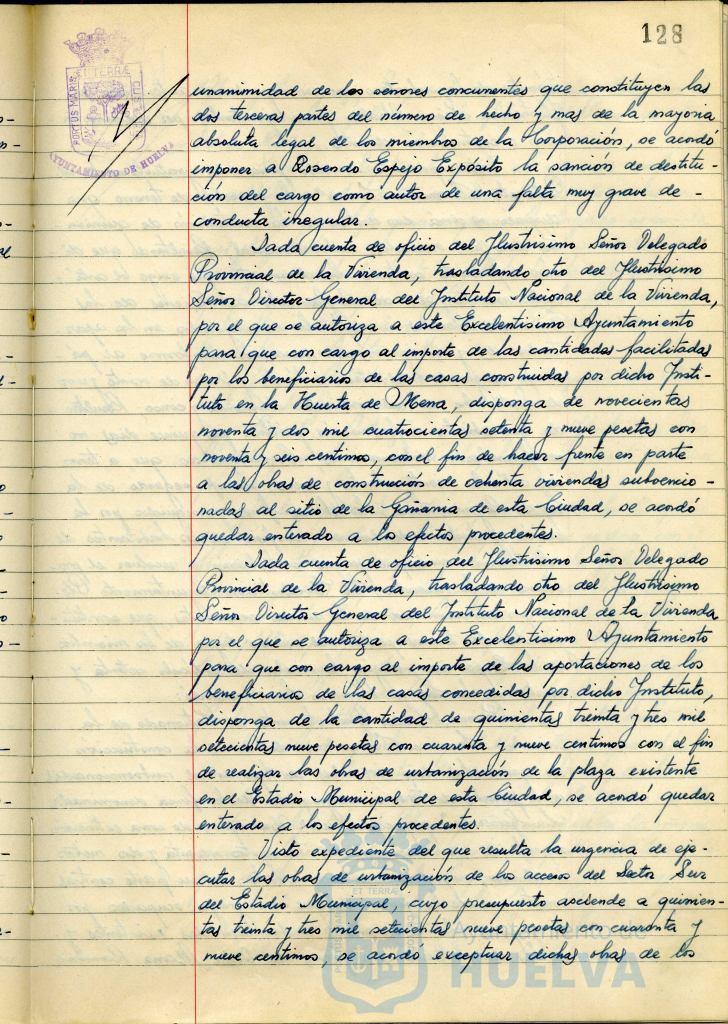 128
PORTUS MARIS ET TERRÆ CUSTODIA
AYUNTAMIENTO DE HUELVA
unanimidad de los señores concurrentes que constituyen las
dos terceras partes del número de hecho y mas de la mayoria
absoluta legal de los miembros de la Corporación, se acordo
imponer a Rosendo Espejo Expósito la sanción de destitu-
ción del cargo como autor de una falta muy grave de-
conducta irregular.
Dada cuenta de oficio del Ilustrisimo Señor Delegado
Provincial de la Vivienda, trasladando otro del Ilustrisimo
Señor Director General del Instituto Nacional de la Vivienda,
por el que se autoriza a este Excelentisimo Ayuntamiento
para que con cargo al importe de las cantidades facilitadas
por los beneficiarios de las casas construidas por dicho Insti-
tuto en la Huerta de Mena, disponga de novecientas
noventa y dos mil cuatrocientas setenta y nueve pesetas con
noventa y seis centimos, con el fin de hacer frente en parte
a las obras de construcción de ochenta viviendas subvencio-
nadas al sitio de la Gañania de esta Ciudad, se acordó
quedar enterado a los efectos procedentes.
Dada cuenta de oficio del Ilustrisimo Señor Delegado
Provincial de la Vivienda, trasladando otro del Ilustrisimo
Señor Director General del Instituto Nacional de la Vivienda
por el que se autoriza a este Excelentisimo Ayuntamiento
para que con cargo al importe de las aportaciones de los
beneficiarios de las casas concedidas por dicho Instituto,
disponga de la cantidad de quinientas treinta y tres mil
setecientas nueve pesetas con cuarenta y nueve centimos con el fin
de realizar las obras de urbanización de la plaza existente
en el Estadio Municipal de esta Ciudad, se acordó quedar
enterado a los efectos procedentes.
Visto expediente del que resulta la urgencia de eje-
cutar las obras de urbanización de los accesos del Sector Sur
del Estadio Municipal, cuyo presupuesto asciende a quinien-
tas treinta y tres mil setecientas nueve pesetas con cuarenta y
nueve centimos, se acordó exceptuar dichas obras de los
HUELVA